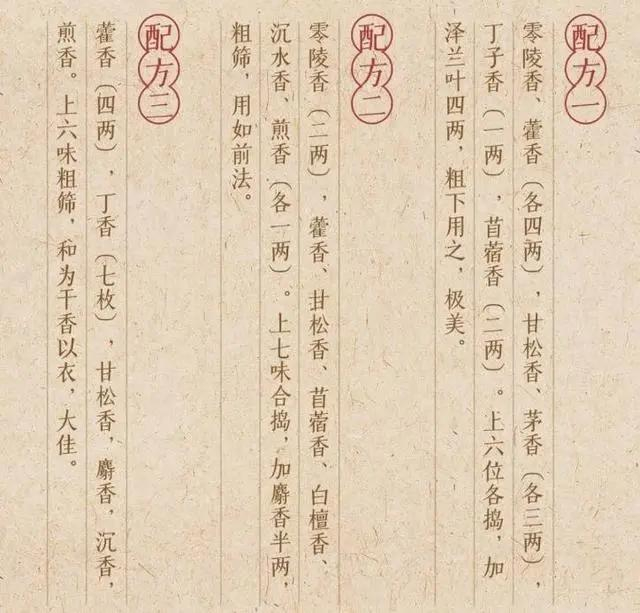 配方一
零陵香、藿香（各四两），甘松香、茅香（各三两），
丁子香（一两），苜蓿香（二两）。上六位各捣，加
泽兰叶四两，粗下用之，极美。
配方二
零陵香（二两），藿香、甘松香、苜蓿香、白檀香、
沉水香、煎香（各一两）。上七味合捣，加麝香半两，
粗筛，用如前法。
配方三
藿香（四两），丁香（七枚），甘松香，麝香，沉香，
煎香。上六味粗筛，和为干香以衣，大佳。